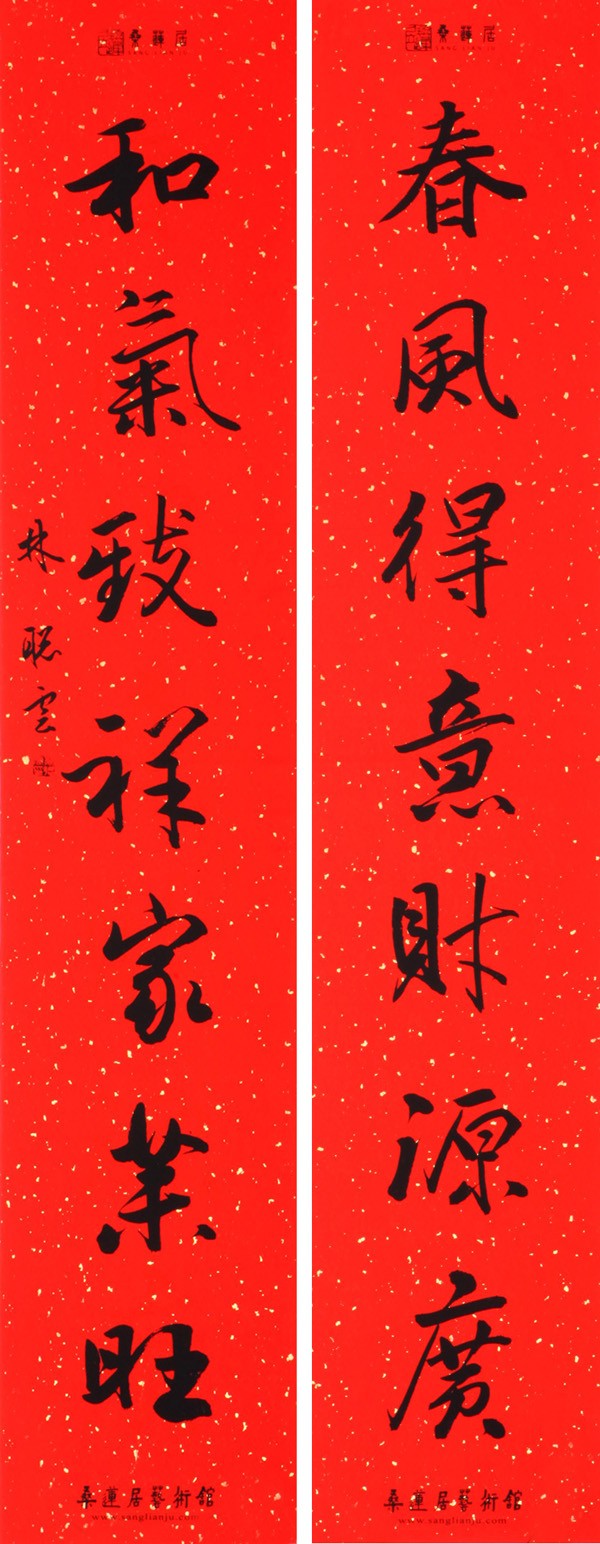 桑蓮居
SANG LIAN JU
春風得意財源廣
桑蓮居藝術館
www.sanglianju.com
桑蓮居
SANG LIAN JU
和氣致祥家業旺
林聰雲
桑蓮居藝術館
www.sanglianju.com